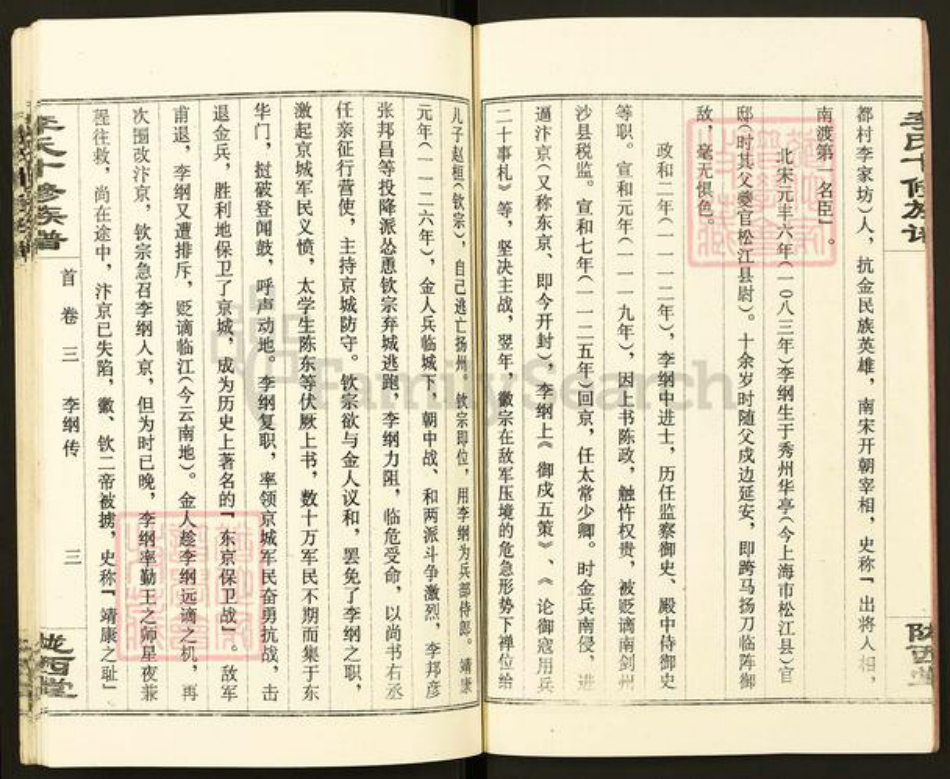 李氏十修族谱
陇西堂
都村李家坊）人，抗金民族英雄，南宋开朝宰相，史称「出将人相，
南渡第一名臣」。
北宋元丰六年（一〇八三年）李纲生于秀州华亭（今上海市松江县）官
邸（时其父夔官松江县尉）。十余岁时随父戍边延安，即跨马扬刀临阵御
敌，毫无惧色。
政和二年（一一一二年），李纲中进士，历任监察御史、殿中侍御史
等职。宣和元年（一一一九年），因上书陈政，触忤权贵，被贬谪南剑州
沙县税监。宣和七年（一一二五年）回京，任太常少卿。时金兵南侵，进
逼汴京（又称东京、即今开封），李纲上《御戎五策》、《论御寇用兵
二十事札》等，坚决主战，翌年，徽宗在敌军压境的危急形势下禅位给
儿子赵桓（钦宗），自己逃亡扬州。钦宗即位，用李纲为兵部侍郎。靖康
元年（一一二六年），金人兵临城下，朝中战、和两派斗争激烈，李邦彦
张邦昌等投降派怂恿钦宗弃城逃跑，李纲力阻，临危受命，以尚书右丞
任亲征行营使，主持京城防守。钦宗欲与金人议和，罢免了李纲之职，
激起京城军民义愤，太学生陈东等伏厥上书，数十万军民不期而集于东
华门，挝破登闻鼓，呼声动地。李纲复职，率领京城军民奋勇抗战，击
退金兵，胜利地保卫了京城，成为历史上著名的「东京保卫战」。敌军
甫退，李纲又遭排斥，贬谪临江（今云南地）。金人趁李纲远谪之机，再
次围改汴京，钦宗急召李纲人京，但为时已晚，李纲率勤王之师星夜兼
程往救，尚在途中，汴京已失陷，徽、钦二帝被掳，史称「靖康之耻」
李氏十修族谱
首卷三 李纲传
三
陇西堂
FamilySearch